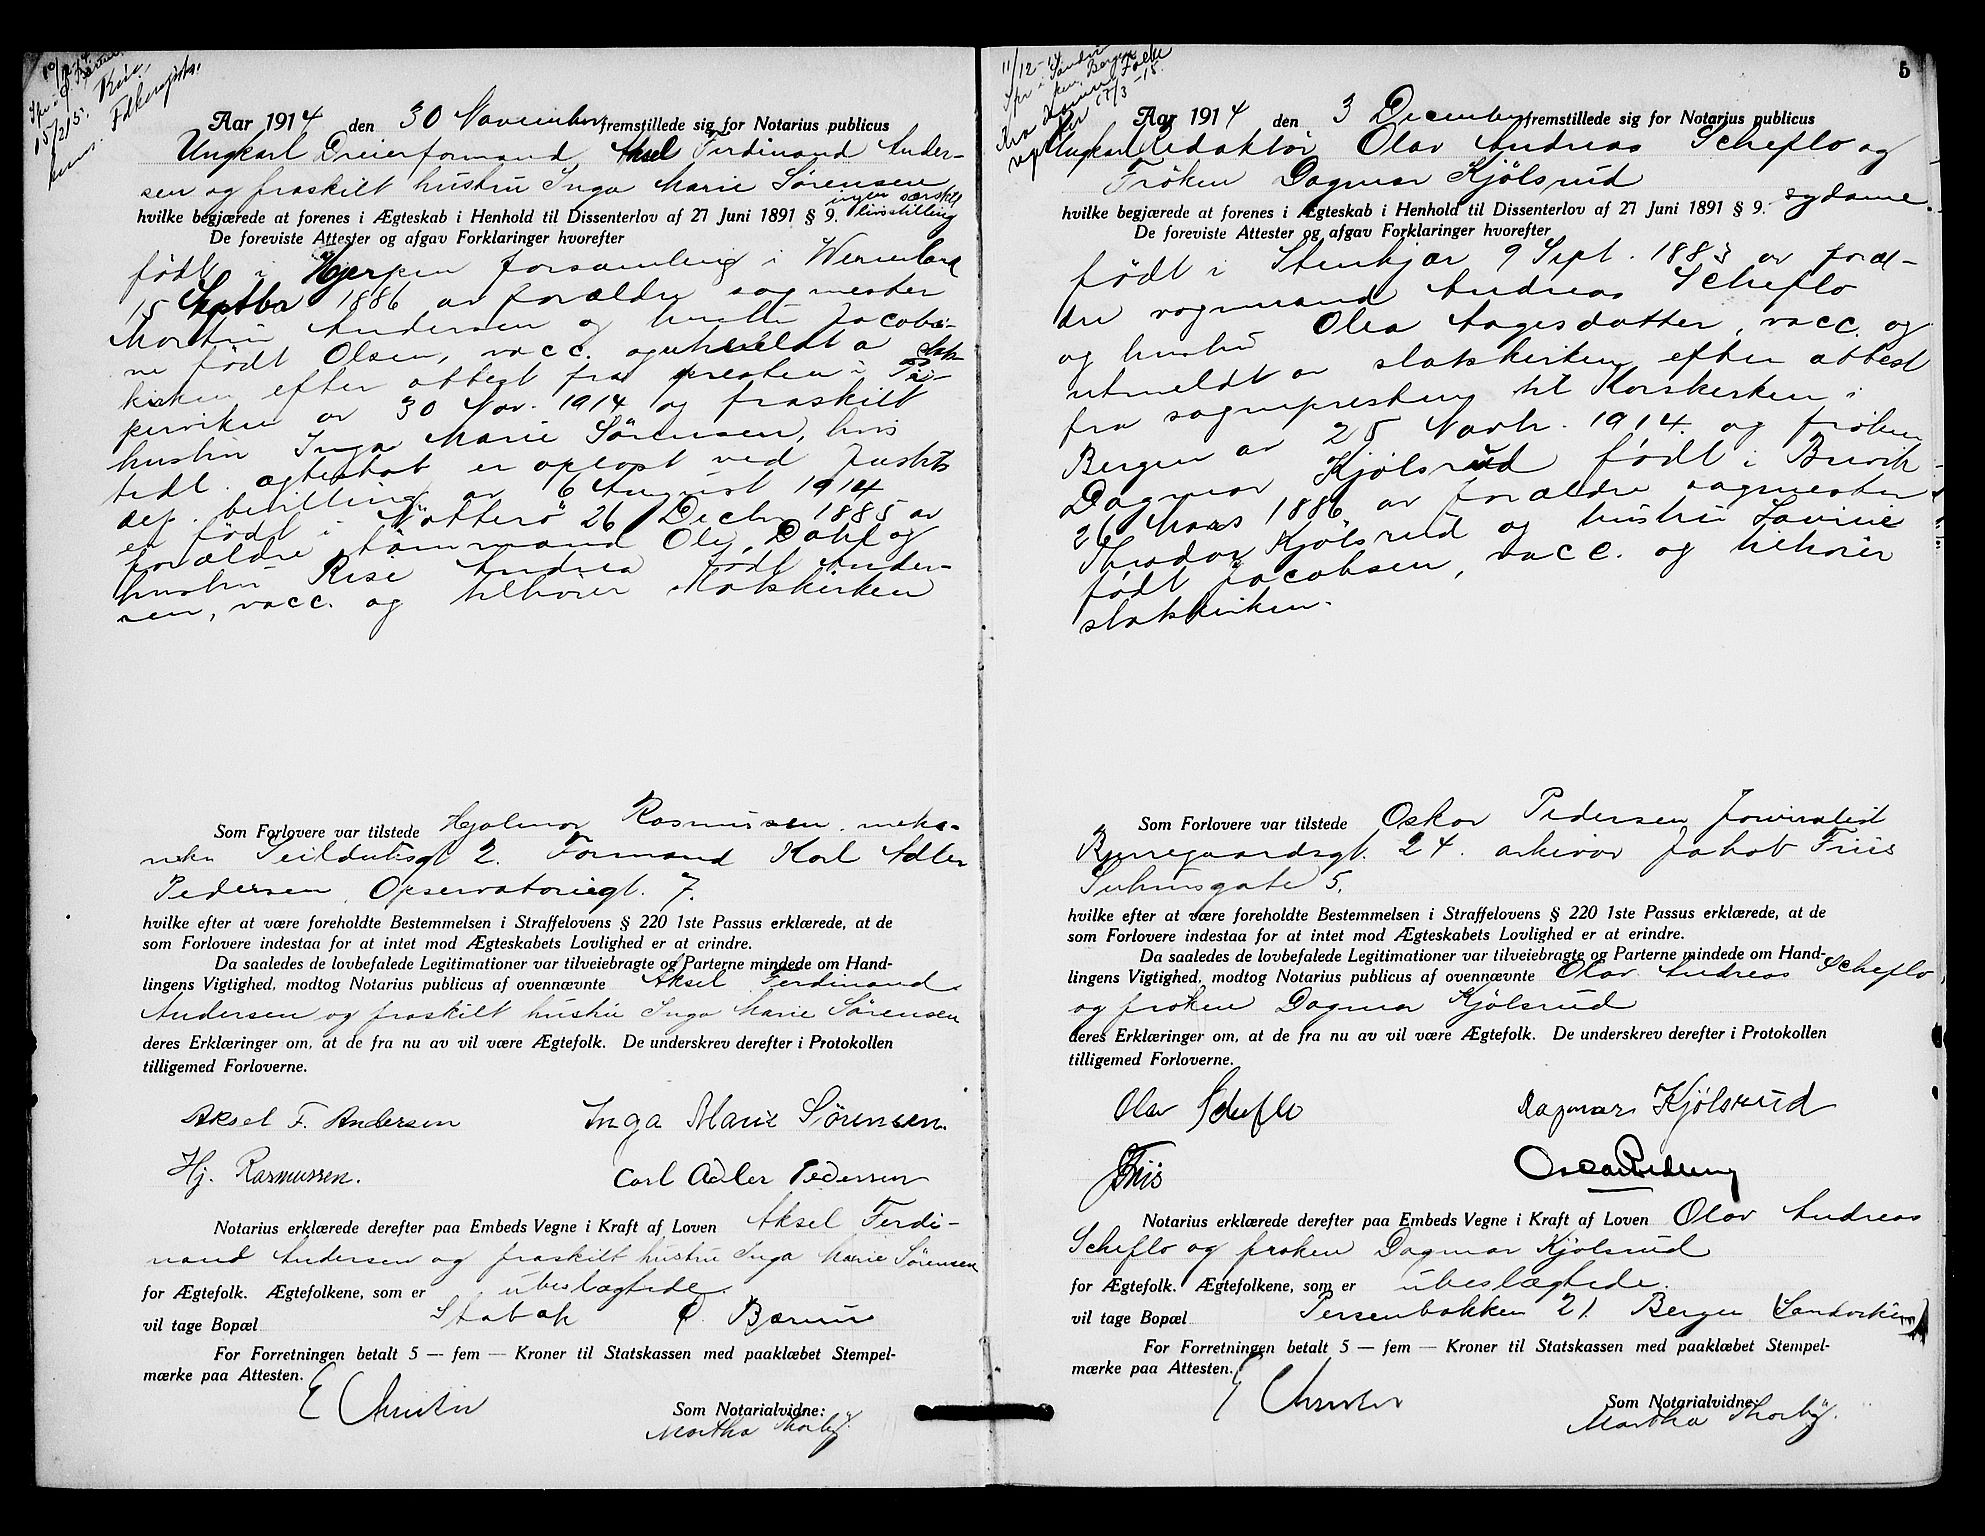 Aar 1914 den 30 November fremstillede sig for Notarius publicus
Ungkarl Dreierformand, Aksel Ferdinand Ander-
sen og fraskilt hustru Inga Marie Sørensen
ingen særskilt
livsstilling
hvilke begjærede at forenes i Ægteskab i Henhold til Dissenterlov af 27 Juni 1891 § 9.
De foreviste Attester og afgav Forklaringer hvorefter
født i forsamling i Wermland
15 Septbr 1886 av forældre sagmester
Martin Andersen og hustru Jacobi-
ne født Olsen, vacc. og utmeldt a stats
kirken efter attest fra presten i Pi-
perviken av 30 Nov. 1914 og fraskilt
hustru Inga Marie Sørensen, hvis
tidl. egteskab er opløst ved Justits
dep. bevilling av 6 August 1914
er født i Nøtterø 26 Decbr 1885 av
forældre tømmand Ole Dahl og
hustru Rise Andrea født Ander-
sen, vacc. og tilhører statskirken
Som Forlovere var tilstede Hjalmar Rasmussen, meka-
niker Seilduksgt 2. Formand Karl Adler
Pedersen, Opservatoriegt. 7.
hvilke efter at være foreholdte Bestemmelsen i Straffelovens § 220 1ste Passus erklærede, at de
som Forlovere indestaa for at intet mod Ægteskabets Lovlighed er at erindre.
Da saaledes de lovbefalede Legitimationer var tilveiebragte og Parterne mindede om Hand-
lingens Vigtighed, modtog Notarius publicus af ovennævnte Aksel Ferdinand
Andersen og fraskilt hustru Inga Marie Sørensen
deres Erklæringer om, at de fra nu av vil være Ægtefolk. De underskrev derefter i Protokollen
tilligemed Forloverne.
Aksel F. Andersen Inga Marie Sørensen.
Hj. Rasmussen. Carl Adler Pedersen
Notarius erklærede derefter paa Embeds Vegne i Kraft af Loven Aksel Ferdi-
nand Andersen og fraskilt hustru Inga Marie Sørensen
for Ægtefolk. Ægtefolkene, som er ubeslægtede.
vil tage Bopæl Stabæk Ø. Bærum
For Forretningen betalt 5 — fem — Kroner til Statskassen med paaklæbet Stempel-
mærke paa Attesten.
E Christie
Som Notarialvidne:
Martha Thorby.
5
Aar 1914 den 3 December fremstillede sig for Notarius publicus
Ungkarl Redaktør Olav Andreas Scheflo og
Frøken Dagmar Kjølsrud sydame.
hvilke begjærede at forenes i Ægteskab i Henhold til Dissenterlov af 27 Juni 1891 § 9.
De foreviste Attester og afgav Forklaringer hvorefter
født i Stenkjær 9 Sept. 1883 av foræl-
dre vognmand Andreas Scheflo
og hustru Olea Aagesdatter, vacc. og
utmeldt av statskirken efter attest
fra sognepresten til Korskirken i
Bergen av 25 Novbr. 1914 og frøken
Dagmar Kjølsrud født i
26 Mars 1886 av forældre sagmester
Theodor Kjølsrud og hustru Lovise
født Jacobsen, vacc. og tilhører
statskirken.
Som Forlovere var tilstede Oskar Pedersen Journalist
Bjerregaardsgt. 24. arkivar Jakob Friis
Suhmsgate 5.
hvilke efter at være foreholdte Bestemmelsen i Straffelovens § 220 1ste Passus erklærede, at de
som Forlovere indestaa for at intet mod Ægteskabets Lovlighed er at erindre.
Da saaledes de lovbefalede Legitimationer var tilveiebragte og Parterne mindede om Hand-
lingens Vigtighed, modtog Notarius publicus af ovennævnte Olav Andreas Scheflo
og frøken Dagmar Kjølsrud
deres Erklæringer om, at de fra nu av vil være Ægtefolk. De underskrev derefter i Protokollen
tilligemed Forloverne.
Olav Scheflo Dagmar Kjølsrud
JFriis Oscar Pedersen
Notarius erklærede derefter paa Embeds Vegne i Kraft af Loven Olav Andreas
Scheflo og frøken Dagmar Kjølsrud
for Ægtefolk. Ægtefolkene, som er ubeslægtede.
vil tage Bopæl Persenbakken 21 Bergen (Sandviken)
For Forretningen betalt 5 — fem — Kroner til Statskassen med paaklæbet Stempel-
mærke paa Attesten.
E Christie
Som Notarialvidne:
Martha Thorby.